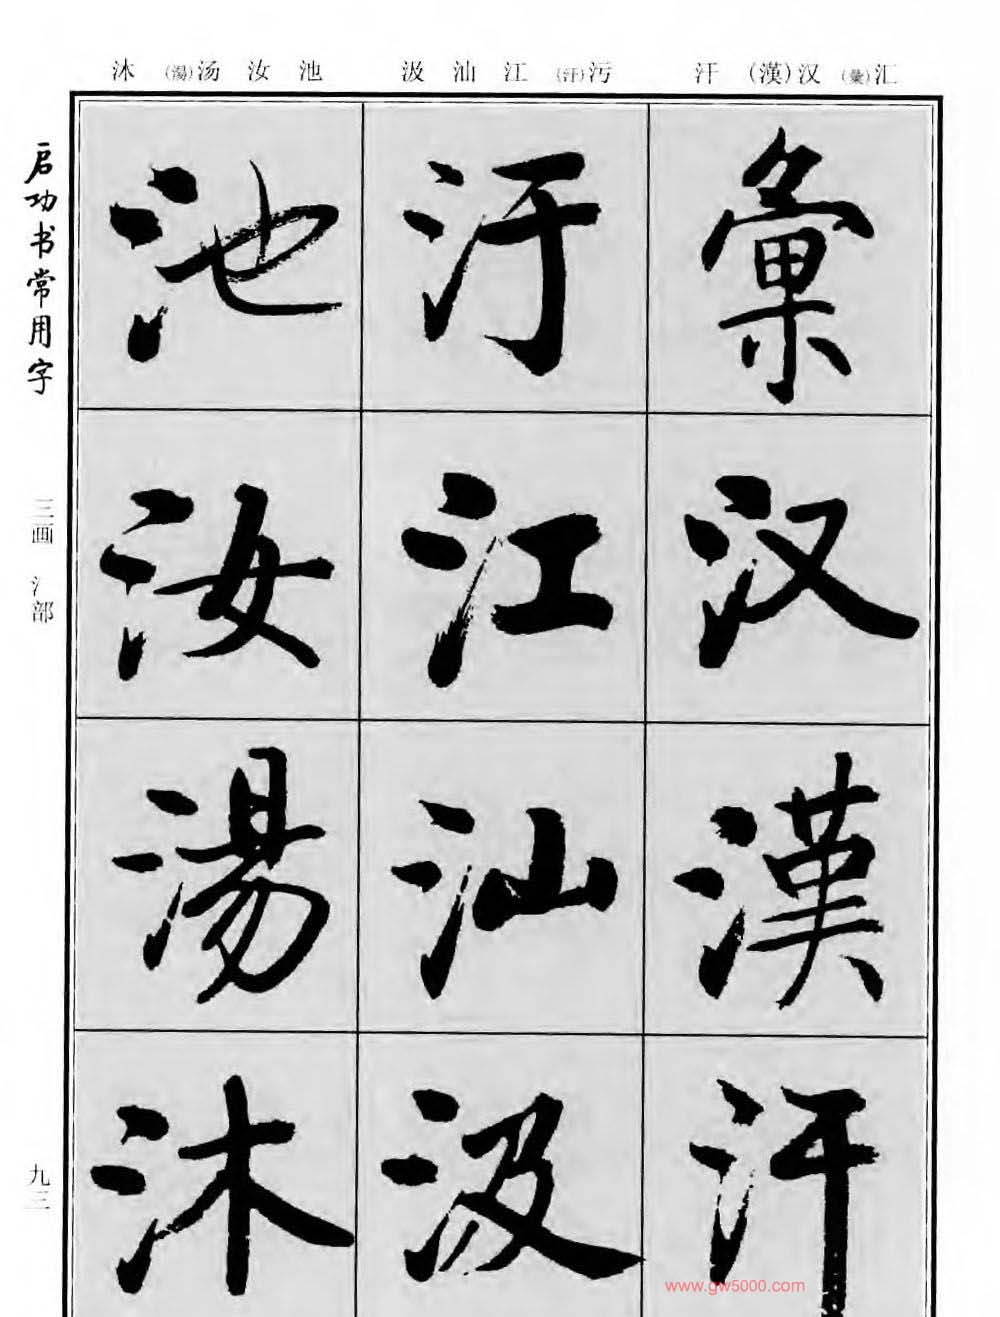 汇(彙)汉(漢)汗
污(汙)江汕汲
池汝汤(湯)沐
彙
汉
漢
汗
汙
江
汕
汲
池
汝
湯
沐
启功书常用字
三画 氵部
九三
www.gw5000.com